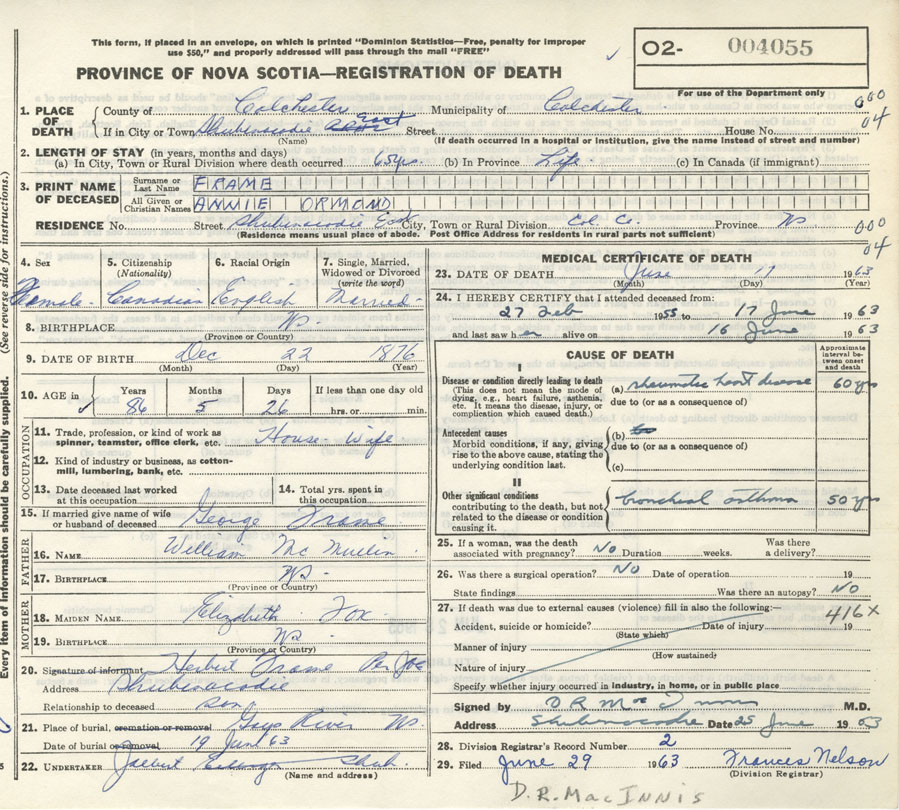 This form, if placed in an envelope, on which is printed "Dominion Statistics—Free, penalty for improper
use $50," and properly addressed will pass through the mail "FREE"
O2- 004055
For use of the Department only
PROVINCE OF NOVA SCOTIA—REGISTRATION OF DEATH
1. PLACE OF DEATH { County of Colchester Municipality of Colchester
000
04
If in City or Town Shubenacadie East Street House No.
(Name) (If death occurred in a hospital or institution, give the name instead of street and number)
2. LENGTH OF STAY (in years, months and days)
(a) In City, Town or Rural Division where death occurred 65 yrs. (b) In Province Life (c) In Canada (if immigrant)
3. PRINT NAME OF DECEASED
Surname or Last Name FRAME
All Given or Christian Names ANNIE ORMOND
RESIDENCE No. Street Shubenacadie East City, Town or Rural Division Col Co. Province NS
000
04
(Residence means usual place of abode. Post Office Address for residents in rural parts not sufficient)
4. Sex Female
5. Citizenship (Nationality) Canadian
6. Racial Origin English
7. Single, Married, Widowed or Divorced (write the word) Married
8. BIRTHPLACE NS
(Province or Country)
9. DATE OF BIRTH Dec 22 1876
(Month) (Day) (Year)
10. AGE in Years 86 Months 5 Days 26 If less than one day old hrs. or min.
OCCUPATION
11. Trade, profession, or kind of work as spinner, teamster, office clerk, etc. House-wife
12. Kind of industry or business, as cotton-mill, lumbering, bank, etc.
13. Date deceased last worked at this occupation
14. Total yrs. spent in this occupation
15. If married give name of wife or husband of deceased George Frame
FATHER
16. NAME William
17. BIRTHPLACE NS
(Province or Country)
MOTHER
18. MAIDEN NAME Elizabeth Fox
19. BIRTHPLACE NS
(Province or Country)
20. Signature of informant Herbert Frame Per
Address Shubenacadie
Relationship to deceased son
21. Place of burial, cremation or removal Gays River NS.
Date of burial or removal 19 June 63
22. UNDERTAKER Shub.
(Name and address)
MEDICAL CERTIFICATE OF DEATH
23. DATE OF DEATH June 17 1963
(Month) (Day) (Year)
24. I HEREBY CERTIFY that I attended deceased from:
27 Feb 1955 to 17 June 1963
and last saw her alive on 16 June 1963
CAUSE OF DEATH
Approximate interval between onset and death
I
Disease or condition directly leading to death
(This does not mean the mode of dying, e.g., heart failure, asthenia, etc. It means the disease, injury, or complication which caused death.)
(a) rheumatic heart disease 60 yrs
due to (or as a consequence of)
Antecedent causes
Morbid conditions, if any, giving rise to the above cause, stating the underlying condition last.
(b)
due to (or as a consequence of)
(c)
II
Other significant conditions
contributing to the death, but not related to the disease or condition causing it.
bronchial asthma 50 yrs
25. If a woman, was the death associated with pregnancy? No Duration weeks. Was there a delivery?
26. Was there a surgical operation? No Date of operation 19
State findings Was there an autopsy? No
27. If death was due to external causes (violence) fill in also the following:—
416X
Accident, suicide or homicide? Date of injury 19
(State which)
Manner of injury
(How sustained)
Nature of injury
Specify whether injury occurred in industry, in home, or in public place
Signed by M.D.
Address Shubenacadie Date 25 June 1963
28. Division Registrar's Record Number 2
29. Filed June 29 1963 Frances Nelson
(Division Registrar)
D.R. MACINNIS
Every item of information should be carefully supplied. (See reverse side for instructions.)